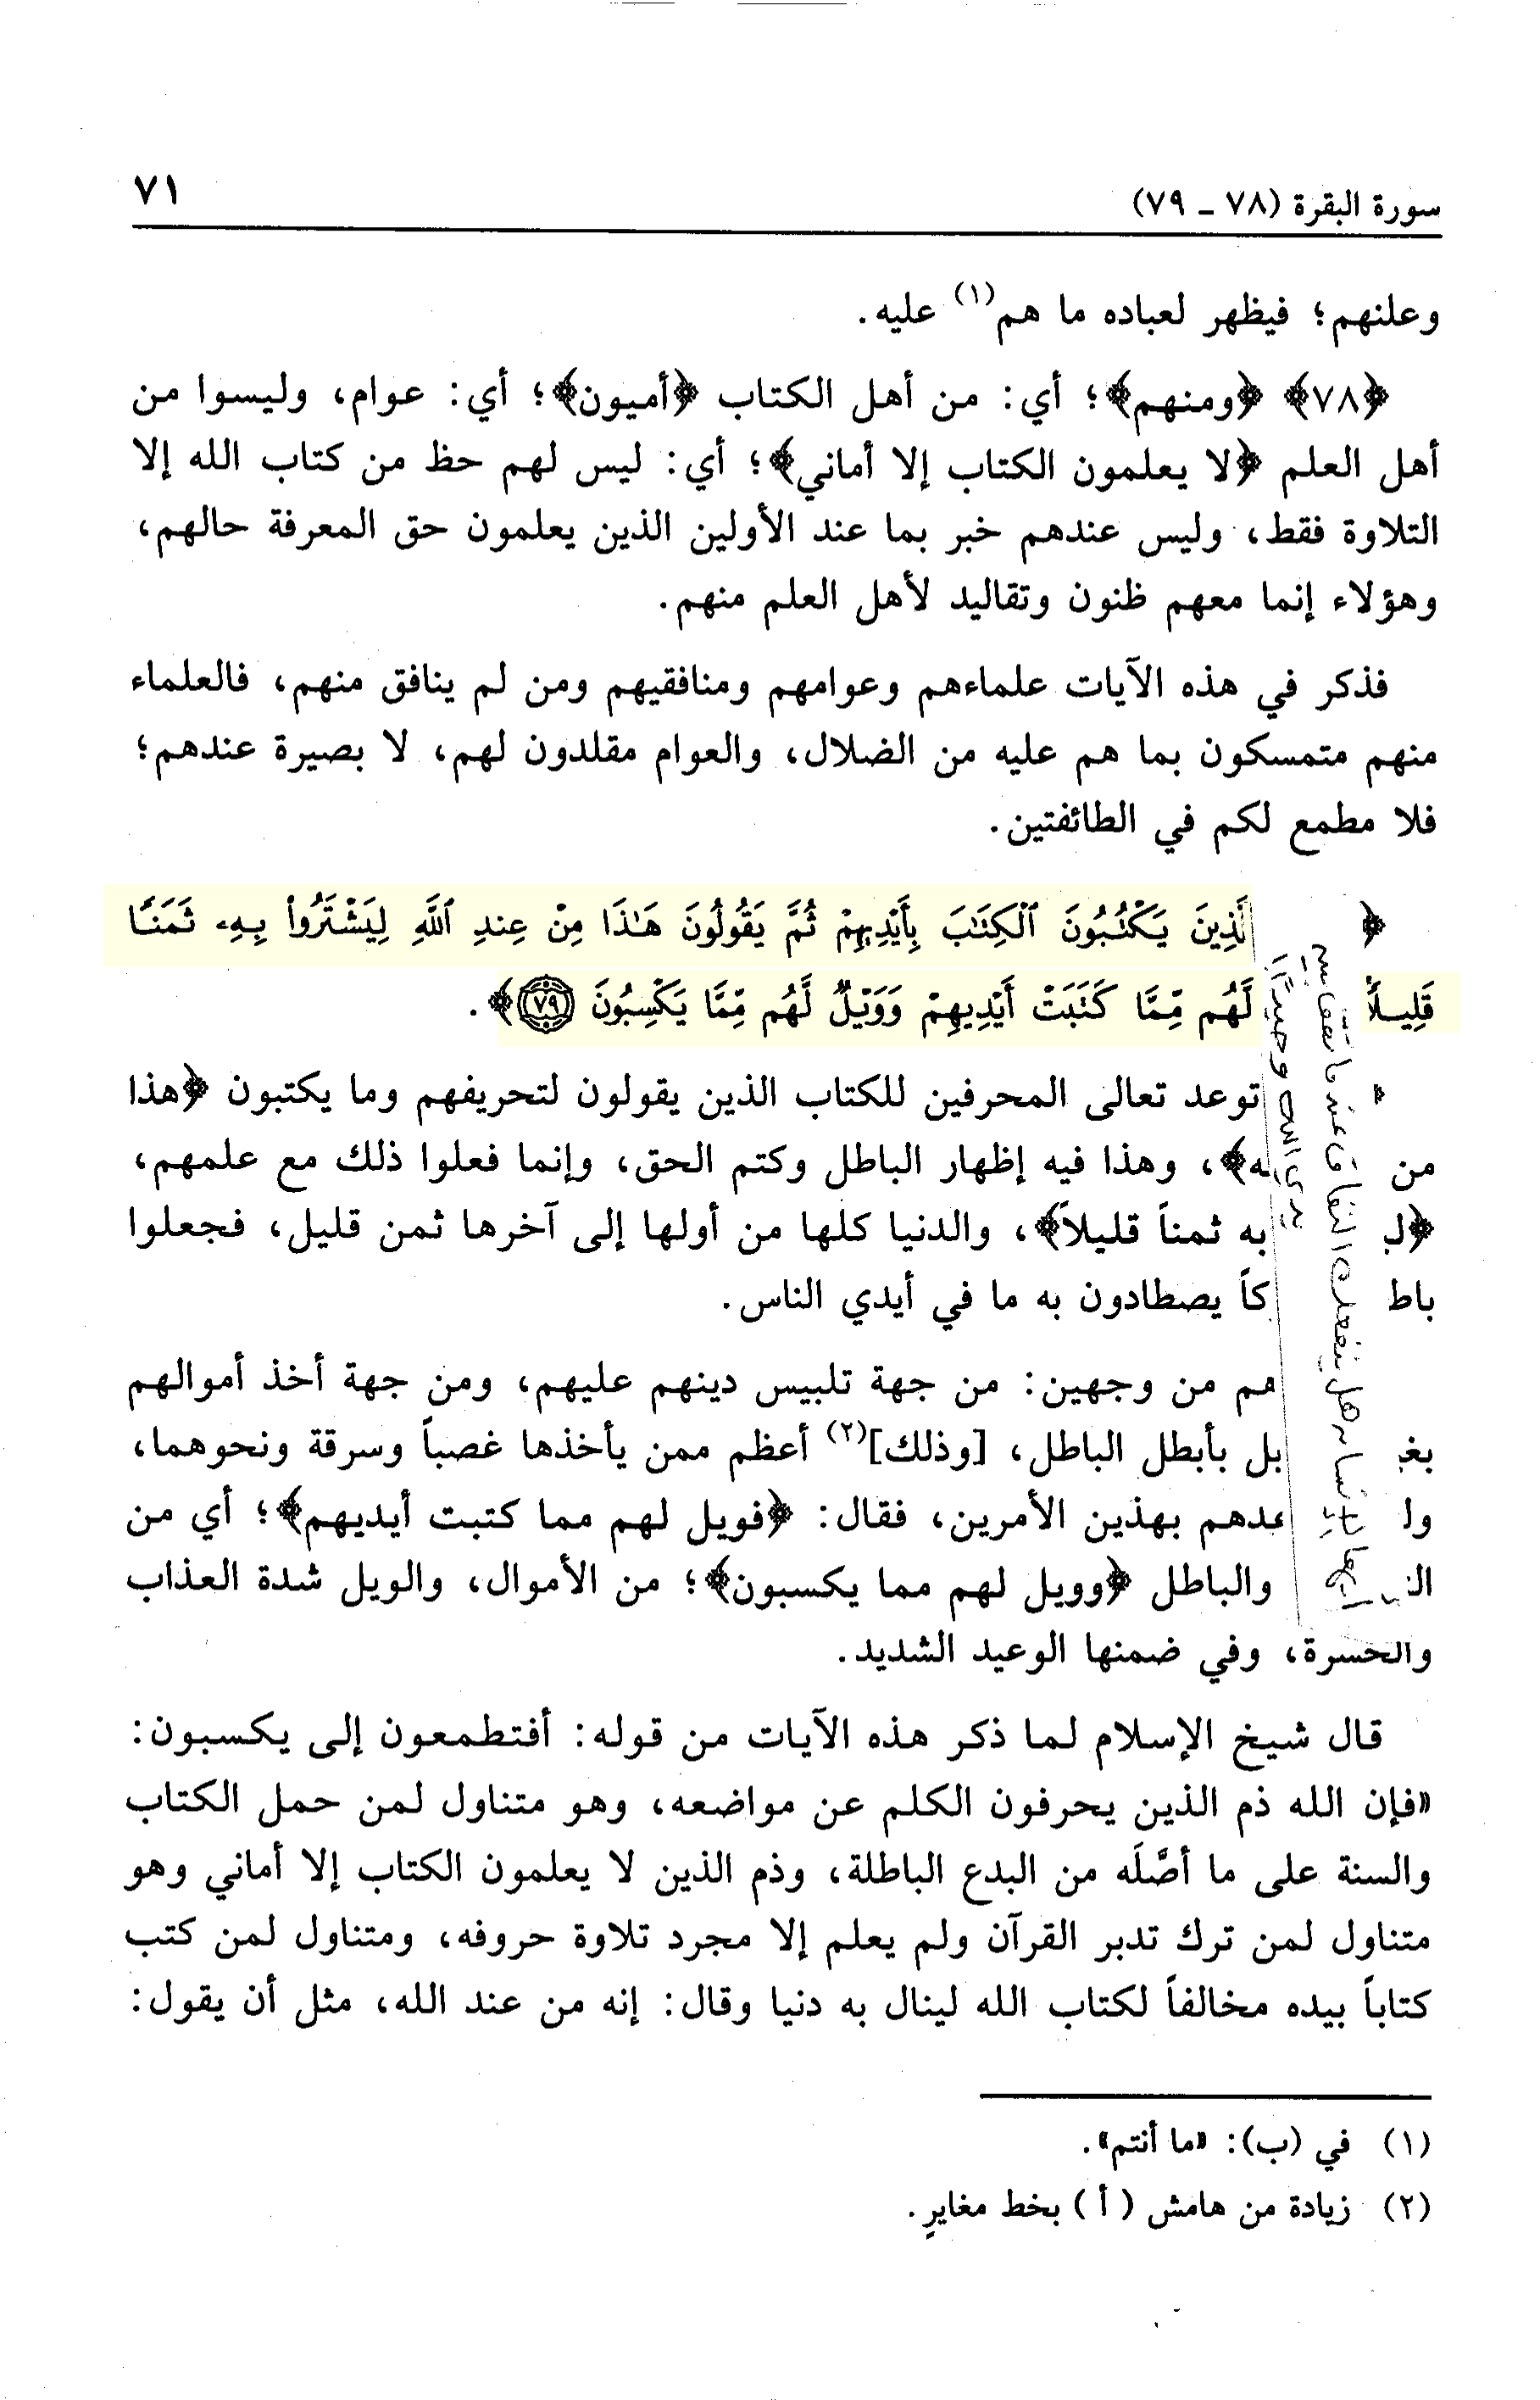 سورة البقرة (٧٨ - ٧٩)
٧١
وعلنهم؛ فيظهر لعباده ما هم(١) عليه.
﴿٧٨﴾ ﴿ومنهم﴾؛ أي: من أهل الكتاب ﴿أميون﴾؛ أي: عوام، وليسوا من
أهل العلم ﴿لا يعلمون الكتاب إلا أماني﴾؛ أي: ليس لهم حظ من كتاب الله إلا
التلاوة فقط، وليس عندهم خبر بما عند الأولين الذين يعلمون حق المعرفة حالهم،
وهؤلاء إنما معهم ظنون وتقاليد لأهل العلم منهم.
فذكر في هذه الآيات علماءهم وعوامهم ومنافقيهم ومن لم ينافق منهم، فالعلماء
منهم متمسكون بما هم عليه من الضلال، والعوام مقلدون لهم، لا بصيرة عندهم؛
فلا مطمع لكم في الطائفتين.
﴿ يَكْتُبُونَ ٱلْكِتَٰبَ بِأَيْدِيهِمْ ثُمَّ يَقُولُونَ هَٰذَا مِنْ عِندِ ٱللَّهِ لِيَشْتَرُوا۟ بِهِۦ ثَمَنًا
قَلِيلًا لَّهُم مِّمَّا كَتَبَتْ أَيْدِيهِمْ وَوَيْلٌ لَّهُم مِّمَّا يَكْسِبُونَ ٧٩﴾.
توعد تعالى المحرفين للكتاب الذين يقولون لتحريفهم وما يكتبون ﴿هذا
من ﴾، وهذا فيه إظهار الباطل وكتم الحق، وإنما فعلوا ذلك مع علمهم،
به ثمناً قليلاً﴾، والدنيا كلها من أولها إلى آخرها ثمن قليل، فجعلوا
يصطادون به ما في أيدي الناس.
من وجهين: من جهة تلبيس دينهم عليهم، ومن جهة أخذ أموالهم
بل بأبطل الباطل، [وذلك](٢) أعظم ممن يأخذها غصباً وسرقة ونحوهما،
بهذين الأمرين، فقال: ﴿فويل لهم مما كتبت أيديهم﴾؛ أي من
والباطل ﴿وويل لهم مما يكسبون﴾؛ من الأموال، والويل شدة العذاب
والحسرة، وفي ضمنها الوعيد الشديد.
قال شيخ الإسلام لما ذكر هذه الآيات من قوله: أفتطمعون إلى يكسبون:
«فإن الله ذم الذين يحرفون الكلم عن مواضعه، وهو متناول لمن حمل الكتاب
والسنة على ما أصَّلَه من البدع الباطلة، وذم الذين لا يعلمون الكتاب إلا أماني وهو
متناول لمن ترك تدبر القرآن ولم يعلم إلا مجرد تلاوة حروفه، ومتناول لمن كتب
كتاباً بيده مخالفاً لكتاب الله لينال به دنيا وقال: إنه من عند الله، مثل أن يقول:
(١) في (ب): «ما أنتم».
(٢) زيادة من هامش (أ) بخط مغايرٍ.